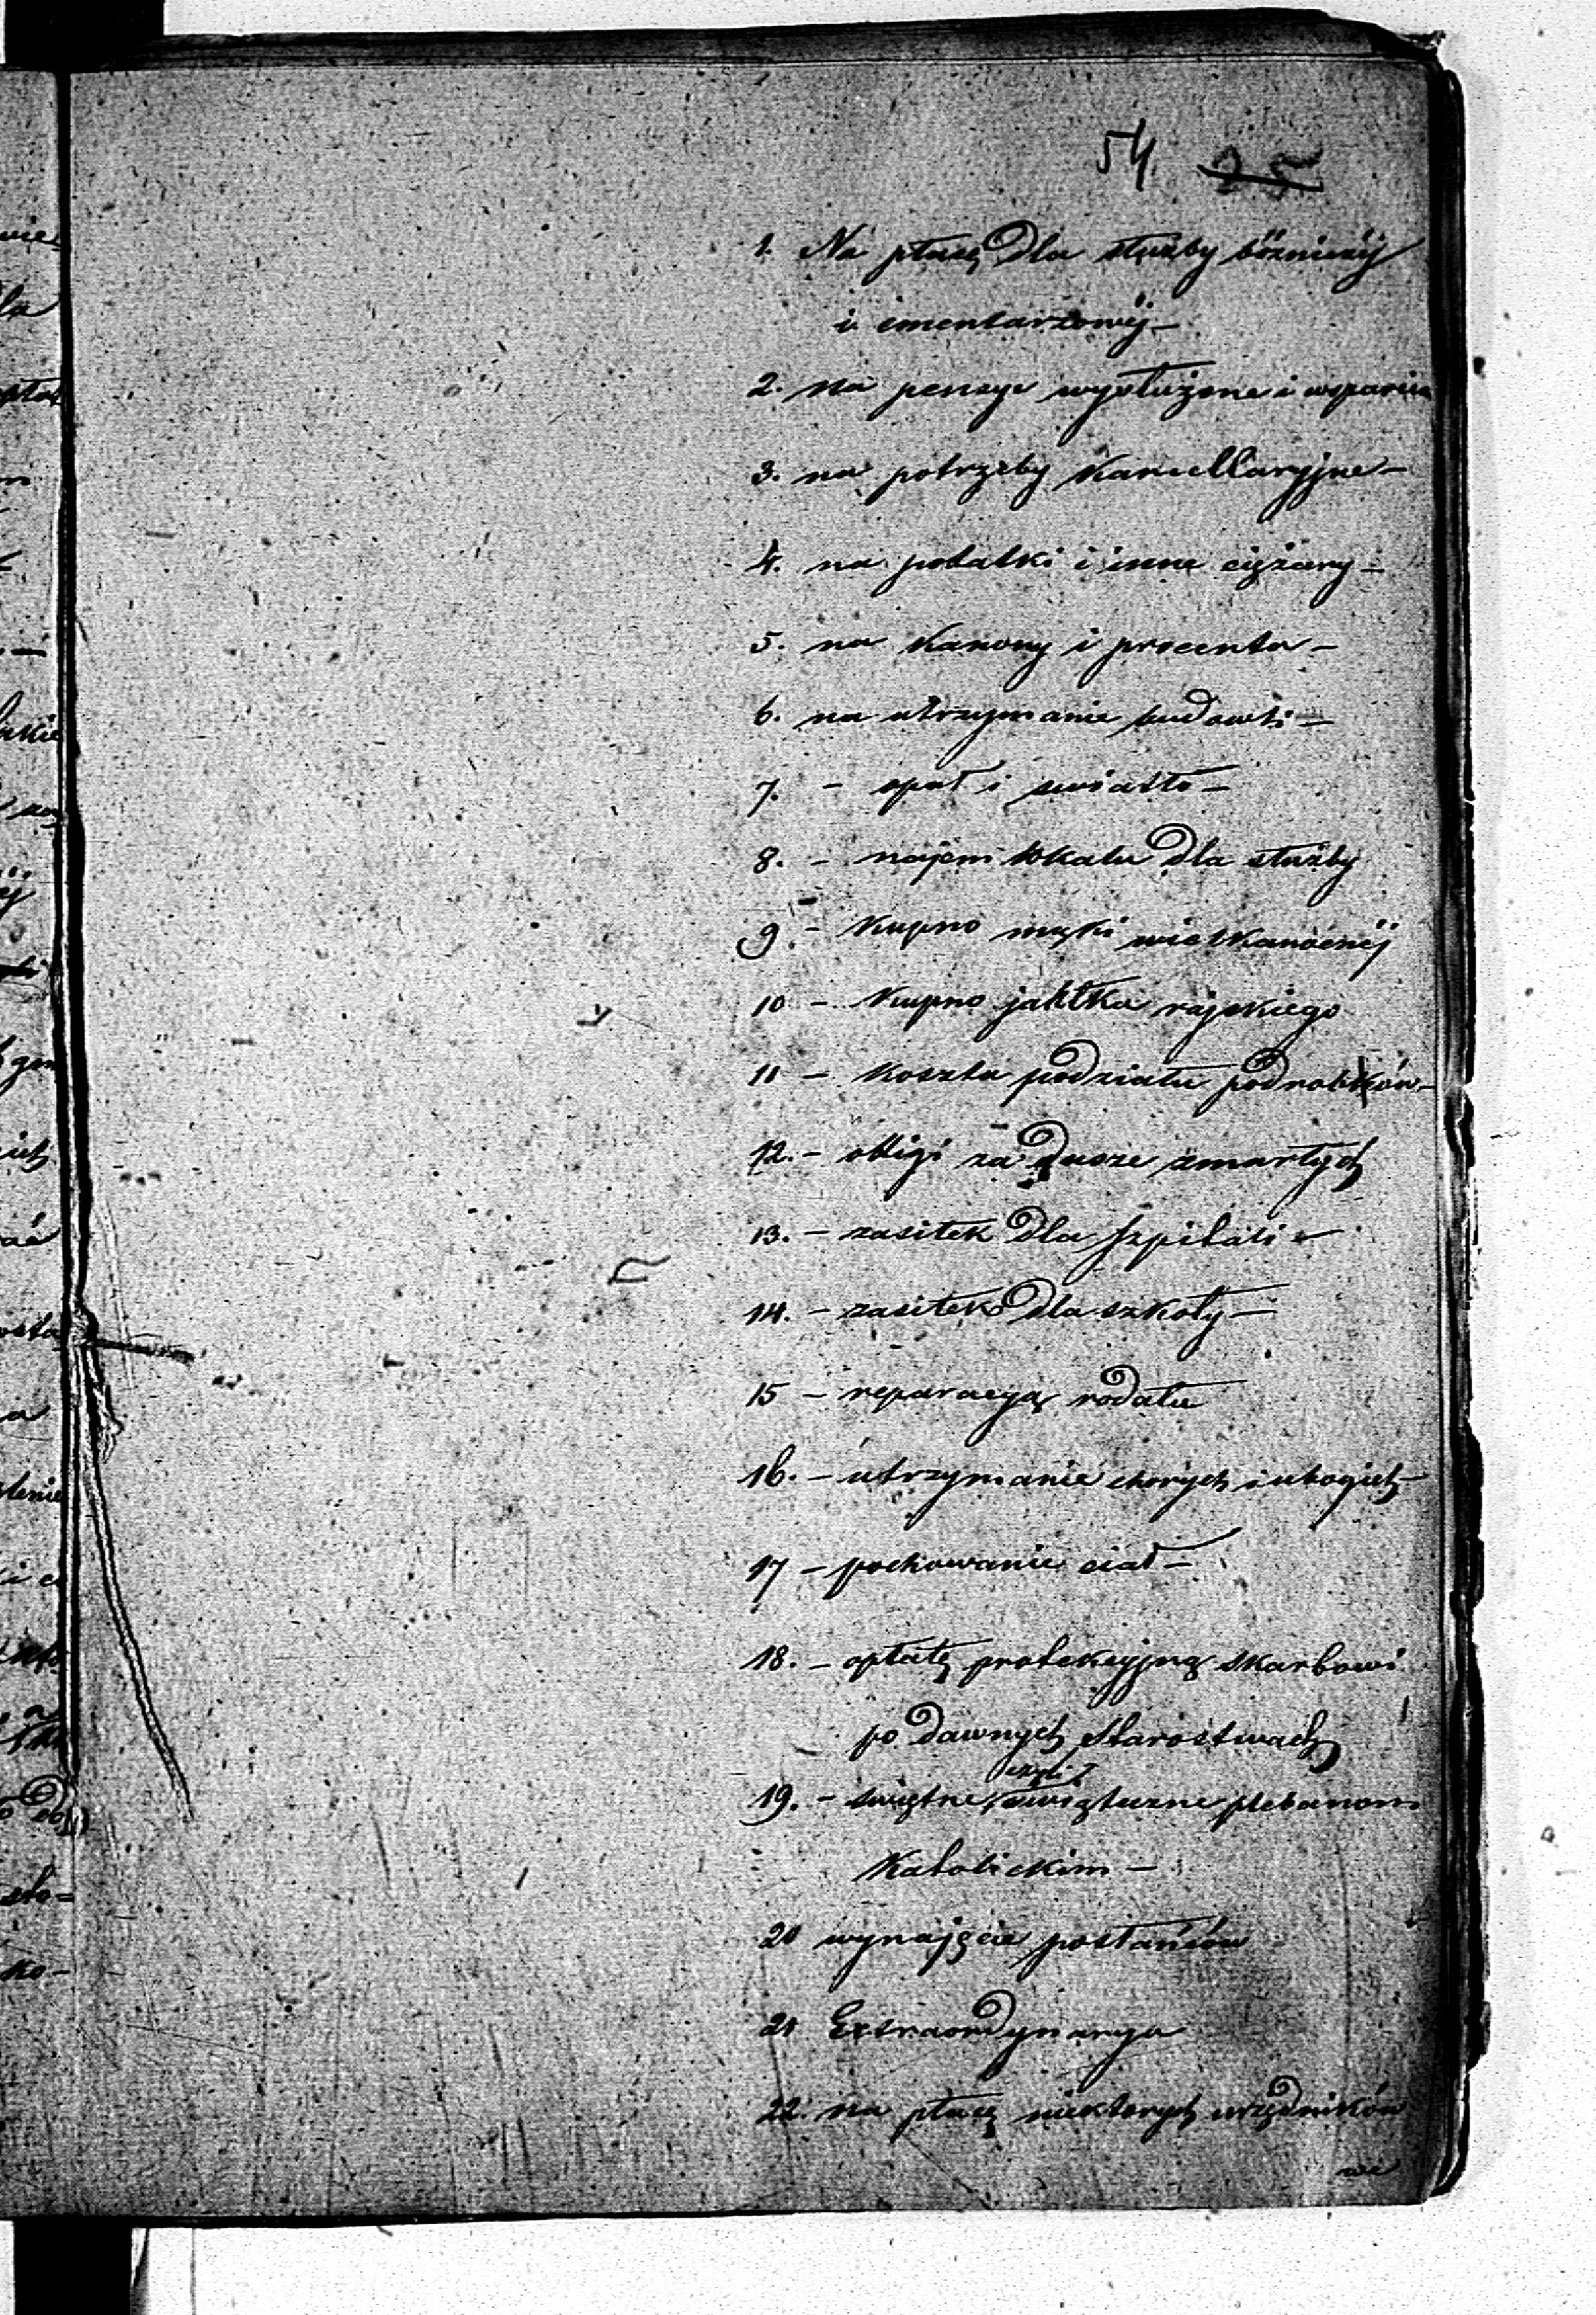 54 25
1. Na płacę dla służby bóżniczéj
i cmentarzowéj –
2. na pensye wysłużone i wsparcia
3. na potrzeby Kancellaryjne –
4. na podatki i inne ciężary –
5. na Kanony i procenta –
6. na utrzymanie budowli –
7. – opał i swiatło –
8. – najem lokalu dla służby
9. – Kupno mąki wielkanocnéj
10 – Kupno jabłka rajskiego
11 – Koszta podziału podrobków –
12. – obligi za dusze zmarłych
13. – zasiłek dla szpitali –
14. – zasiłek dla szkoły –
15 – reparacyą rodału
16. – utrzymanie chorych i ubogich –
17 – pochowanie ciał –
18. – opłatę protekcyjną skarbowi
po dawnych Starostwach
czyli
19. – swiętne swiąteczne plebanom
Katolickim –
20 wynajęcie posłańców
21 Extraordynarya
22. na płacę niektorych urzędników
we